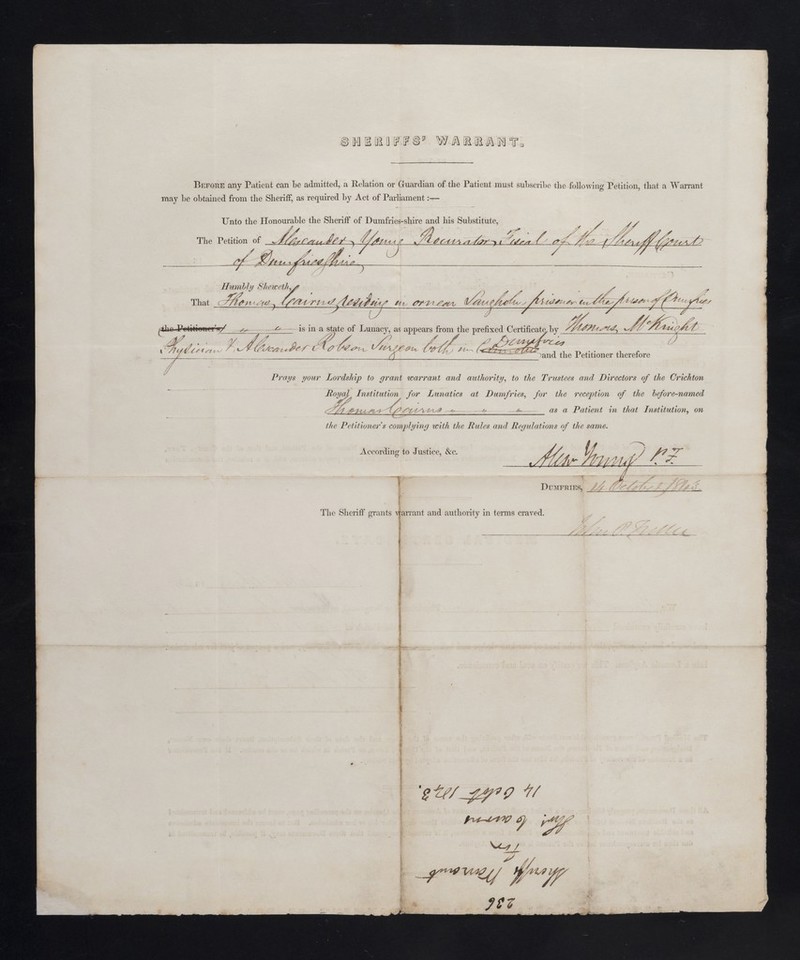 SHERIFFS' WARRANT.
BEFORE any Patient can be admitted, a Relation or Guardian of the Patient must subscribe the following Petition, that a Warrant
may be obtained from the Sheriff, as required by Act of Parliament:—
Unto the Honourable the Sheriff of Dumfries-shire and his Substitute,
The Petition of Alexander Young Procurator Fiscal of the Sheriff Court
of Dumfriesshire,
Humbly Sheweth,
That Thomas Cairns residing in or near Langholm, prisoner in the prison of Dumfries
(the Petitioner's) " " is in a state of Lunacy, as appears from the prefixed Certificate, by Thomas McKnight
Physician & Alexander Robson Surgeon both in Dumfries and the Petitioner therefore
Prays your Lordship to grant warrant and authority, to the Trustees and Directors of the Crichton
Royal Institution for Lunatics at Dumfries, for the reception of the before-named
Thomas Cairns " " " as a Patient in that Institution, on
the Petitioner's complying with the Rules and Regulations of the same.
According to Justice, &c.
Alexr Young P.F.
DUMFRIES, 14 October 1843
The Sheriff grants warrant and authority in terms craved.
236
Sheriffs Warrant
for
Thos. Cairns
14 Octor 1843.